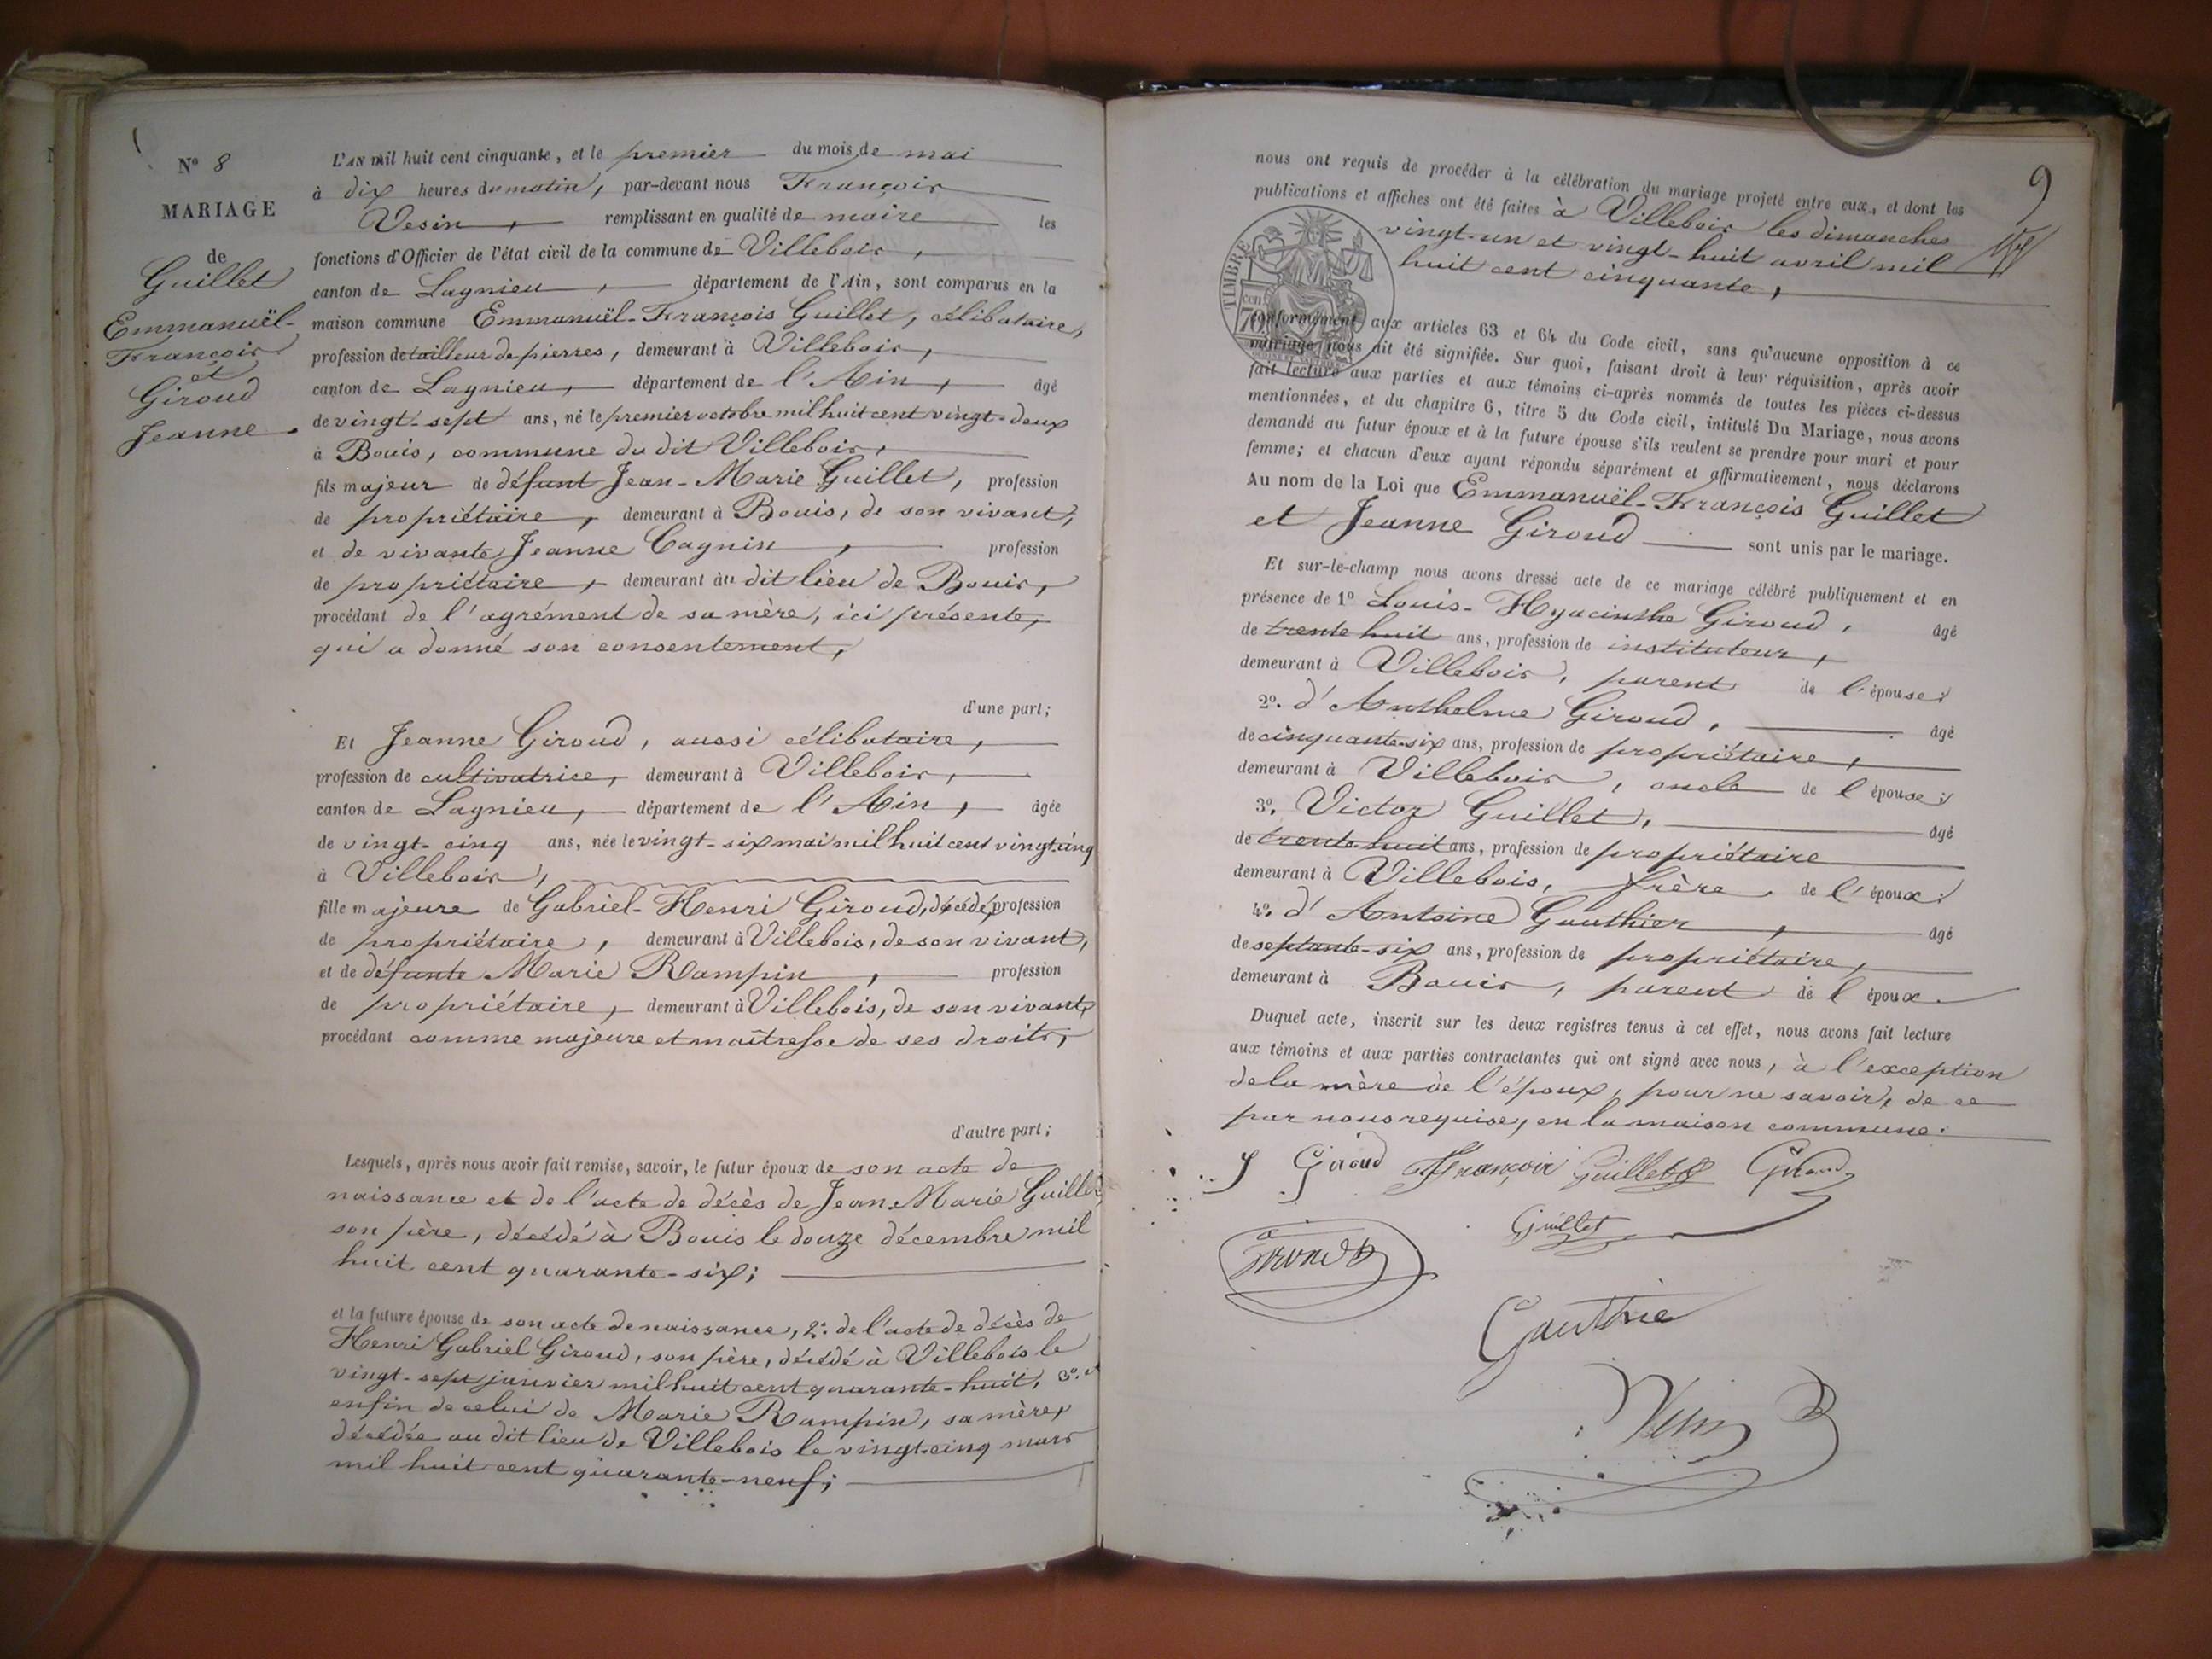 N° 8
MARIAGE
de
Guillet
Emmanuël-
François
et
Giroud
Jeanne.
L'AN mil huit cent cinquante, et le premier du mois de mai
à dix heures du matin, par-devant nous François
Vesin, remplissant en qualité de maire les
fonctions d'Officier de l'état civil de la commune de Villebois,
canton de Lagnieu, département de l'Ain, sont comparus en la
maison commune Emmanuël-François Guillet, célibataire,
profession de tailleur de pierres, demeurant à Villebois,
canton de Lagnieu, département de l'Ain, âgé
de vingt-sept ans, né le premier octobre mil huit cent vingt-deux
à Bouis, commune du dit Villebois,
fils majeur de défunt Jean-Marie Guillet, profession
de propriétaire, demeurant à Bouis, de son vivant,
et de vivante Jeanne Cagnin, profession
de propriétaire, demeurant au dit lieu de Bouis,
procédant de l'agrément de sa mère, ici présente,
qui a donné son consentement,
d'une part;
Et Jeanne Giroud, aussi célibataire,
profession de cultivatrice, demeurant à Villebois,
canton de Lagnieu, département de l'Ain, âgée
de vingt-cinq ans, née le vingt-six mai mil huit cent vingt-cinq
à Villebois,
fille majeure de Gabriel-Henri Giroud, décédé, profession
de propriétaire, demeurant à Villebois, de son vivant,
et de défunte Marie Rampin, profession
de propriétaire, demeurant à Villebois, de son vivant,
procédant comme majeure et maîtresse de ses droits,
d'autre part;
Lesquels, après nous avoir fait remise, savoir, le futur époux de son acte de
naissance et de l'acte de décès de Jean-Marie Guillet,
son père, décédé à Bouis le douze décembre mil
huit cent quarante-six;
et la future épouse de son acte de naissance, 2° de l'acte de décès de
Henri Gabriel Giroud, son père, décédé à Villebois le
vingt-sept janvier mil huit cent quarante-huit, 3° et
enfin de celui de Marie Rampin, sa mère,
décédée au dit lieu de Villebois le vingt-cinq mars
mil huit cent quarante-neuf;
9
nous ont requis de procéder à la célébration du mariage projeté entre eux, et dont les
publications et affiches ont été faites à Villebois les dimanches
vingt-un et vingt-huit avril mil
huit cent cinquante,
TIMBRE
70
conformément aux articles 63 et 64 du Code civil, sans qu'aucune opposition à ce
mariage nous ait été signifiée. Sur quoi, faisant droit à leur réquisition, après avoir
fait lecture aux parties et aux témoins ci-après nommés de toutes les pièces ci-dessus
mentionnées, et du chapitre 6, titre 5 du Code civil, intitulé Du Mariage, nous avons
demandé au futur époux et à la future épouse s'ils veulent se prendre pour mari et pour
femme; et chacun d'eux ayant répondu séparément et affirmativement, nous déclarons
Au nom de la Loi que Emmanuël-François Guillet
et Jeanne Giroud sont unis par le mariage.
Et sur-le-champ nous avons dressé acte de ce mariage célébré publiquement et en
présence de 1° Louis-Hyacinthe Giroud, âgé
de trente huit ans, profession de instituteur,
demeurant à Villebois, parent de l'épouse;
2°. d'Anthelme Giroud, âgé
de cinquante-six ans, profession de propriétaire,
demeurant à Villebois, oncle de l'épouse;
3°. Victor Guillet, âgé
de trente huit ans, profession de propriétaire
demeurant à Villebois, frère de l'époux;
4°. d'Antoine Gauthier, âgé
de septante-six ans, profession de propriétaire,
demeurant à Bouis, parent de l'époux.
Duquel acte, inscrit sur les deux registres tenus à cet effet, nous avons fait lecture
aux témoins et aux parties contractantes qui ont signé avec nous, à l'exception
de la mère de l'époux, pour ne savoir, de ce
par nous requise, en la maison commune.
J Giroud François Guillet Giroud
Guillet
Giroud
Gauthie
Vesin